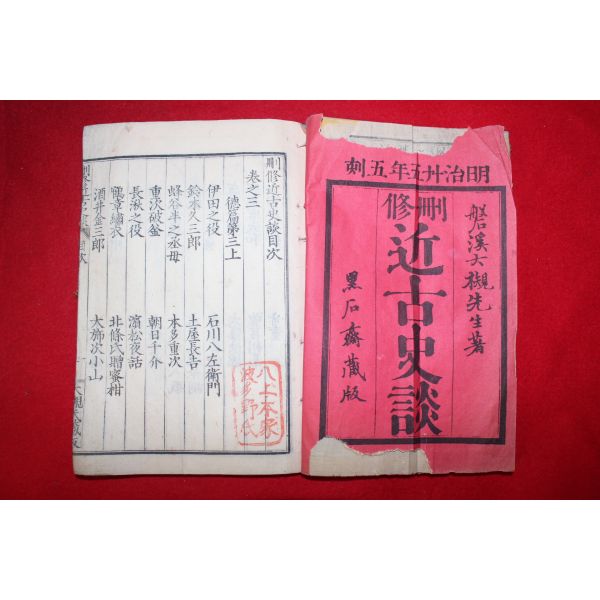 明治廿五年五刻
磐溪大槻先生著
刪修
近古史談
黒石齋藏版
刪修近古史談目次
卷之三
德篇第三上
伊田之役
石川八左衛門
鈴木久三郎
土屋長吉
蜂谷半之丞母
本多重次
重次破釜
朝日千介
長湫之役
濱松夜話
鶴章繡衣
北條氏贈蜜柑
酒井金三郎
大旆次小山
八上本家
波多野氏